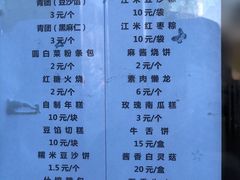 青团（豆沙馅）
3元/个
青团（黑麻仁）
3元/个
圆白菜粉条包
2元/个
红糖火烧
2元/个
自制年糕
10元/块
豆馅切糕
10元/块
糯米豆沙饼
1.5元/个
江米豆沙粽
10元/袋
江米红枣粽
10元/袋
麻酱烧饼
2元/个
素肉懒龙
6元/个
玫瑰南瓜糕
3元/个
牛舌饼
15元/盒
酱香白灵菇
20元/盒